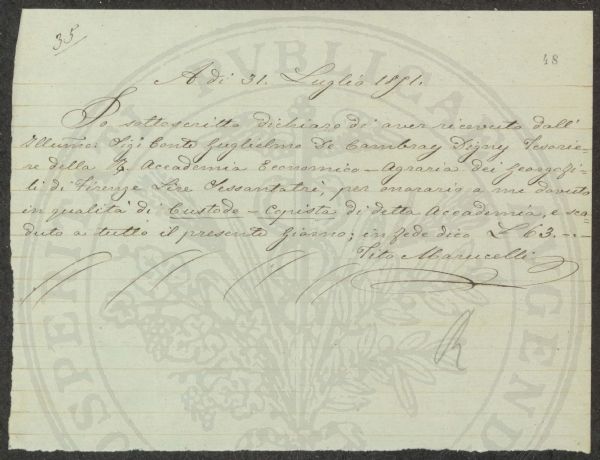 35
48
A di 31. Luglio 1851.
Io sottoscritto dichiaro di aver ricevuto dall'
Illumo: Sigr Conte Guglielmo De Cambray Digny Tesorie=
re della R. Accademia Economico-Agraria dei Georgofi=
li di Firenze Lire Sessantatrè, per onorario a me dovuto
in qualità di Custode-Copista di detta Accademia, e sca=
duto a tutto il presente Giorno; in fede dico £ 63.-.-
Tito Marucelli
R
PVBLICAE
PROSPERITATI
AVGENDAE